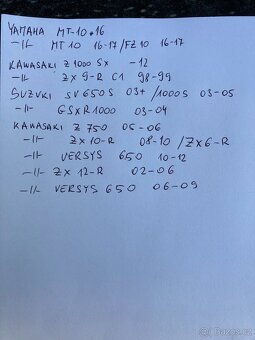 YAMAHA MT-10 +16
-II- MT 10 16-17/FZ10 16-17
KAWASAKI Z 1000 SX -12
-II- ZX 9-R C1 98-99
SUZUKI SV 650S 03+ /1000S 03-05
-II- GSXR1000 03-04
KAWASAKI Z 750 05-06
-II- ZX 10-R 08-10 /ZX6-R
-II- VERSYS 650 10-12
-II- ZX 12-R 02-06
-II- VERSYS 650 06-09